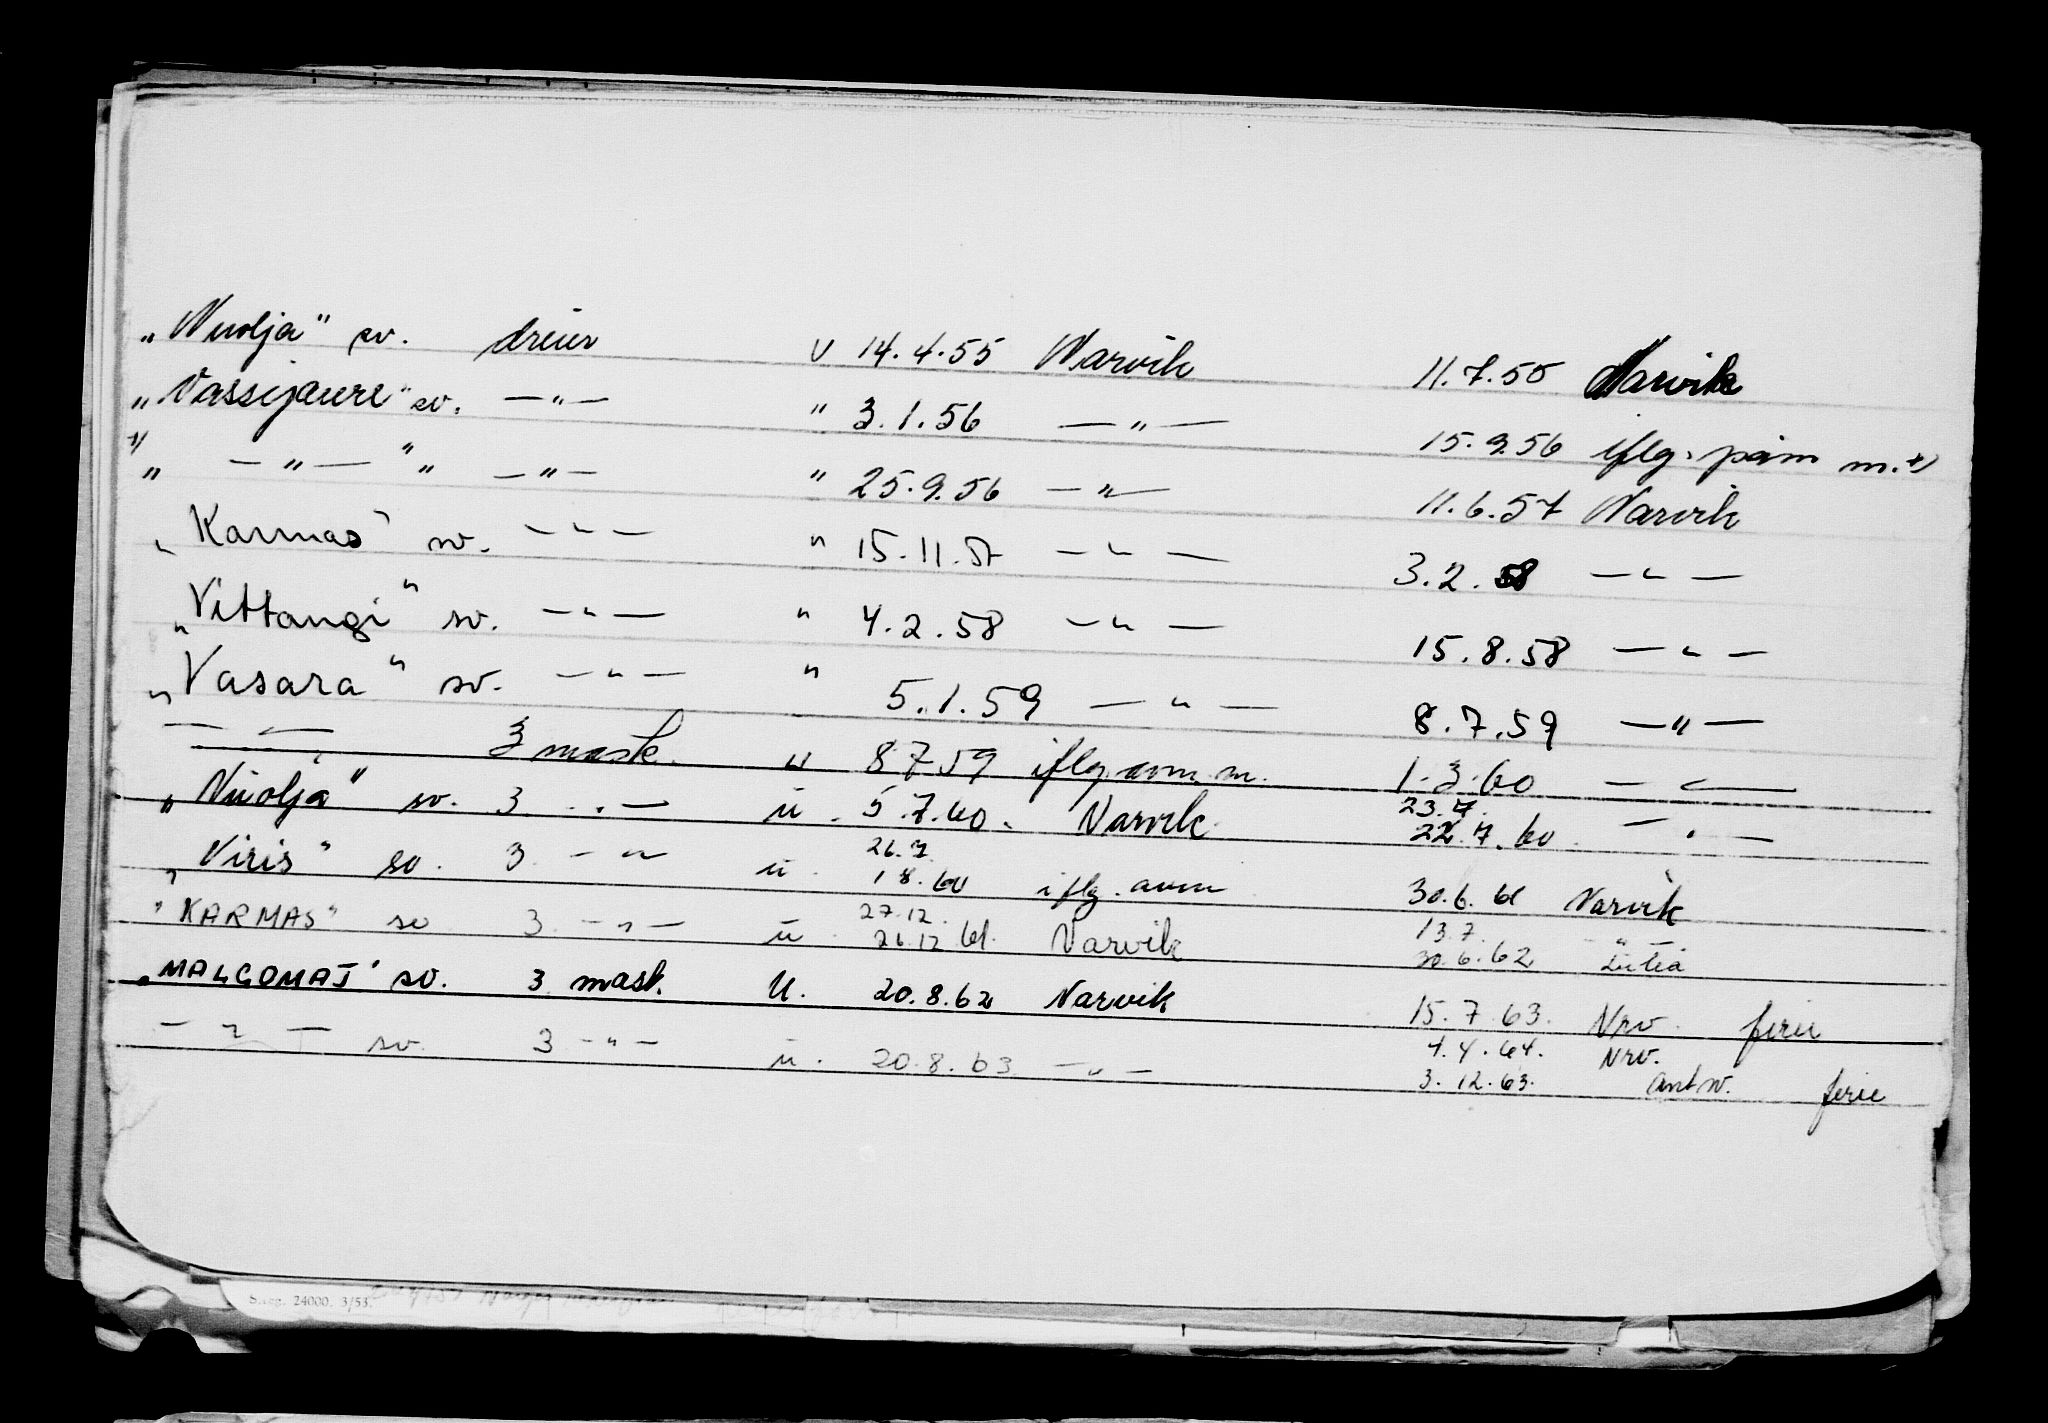 „Nuolja" sv. dreier v 14.4.55 Narvik 11.7.55 Narvik
„Vassijaure" sv. —"— " 3.1.56 —"— 15.9.56 iflg. påm m. x)
x) „ —"— " " —"— " 25.9.56 —"— 11.6.57 Narvik
„Karmas" sv. —"— " 15.11.57 —"— 3.2.58 —"—
„Vittangi" sv. —"— " 4.2.58 —"— 15.8.58 —"—
„Vasara" sv. —"— " 5.1.59 —"— 8.7.59 —"—
—"— 3 mask. u 8 7 59 iflg. avm. m. 1.3.60 —"—
„Nuolja" sv. 3. —"— u. 5.7.60. Narvik 23.7. 22.7.60 —"—
„Viris" sv. 3. —"— u. 26.7. 1 8.60 iflg. avm 30.6.61 Narvik
"KARMAS" sv 3. —"— u. 27.12. 26.12.61. Narvik 13.7. " 30.6.62 Luleå
„MALGOMAJ" sv. 3 mask. U. 20.8.62 Narvik 15.7.63. Nrv. ferie
—"— sv. 3 —"— u. 20.8.63 —"— 4.4.64. Nrv.
3.12.63. Antw. ferie
S.reg. 24000. 3/53.